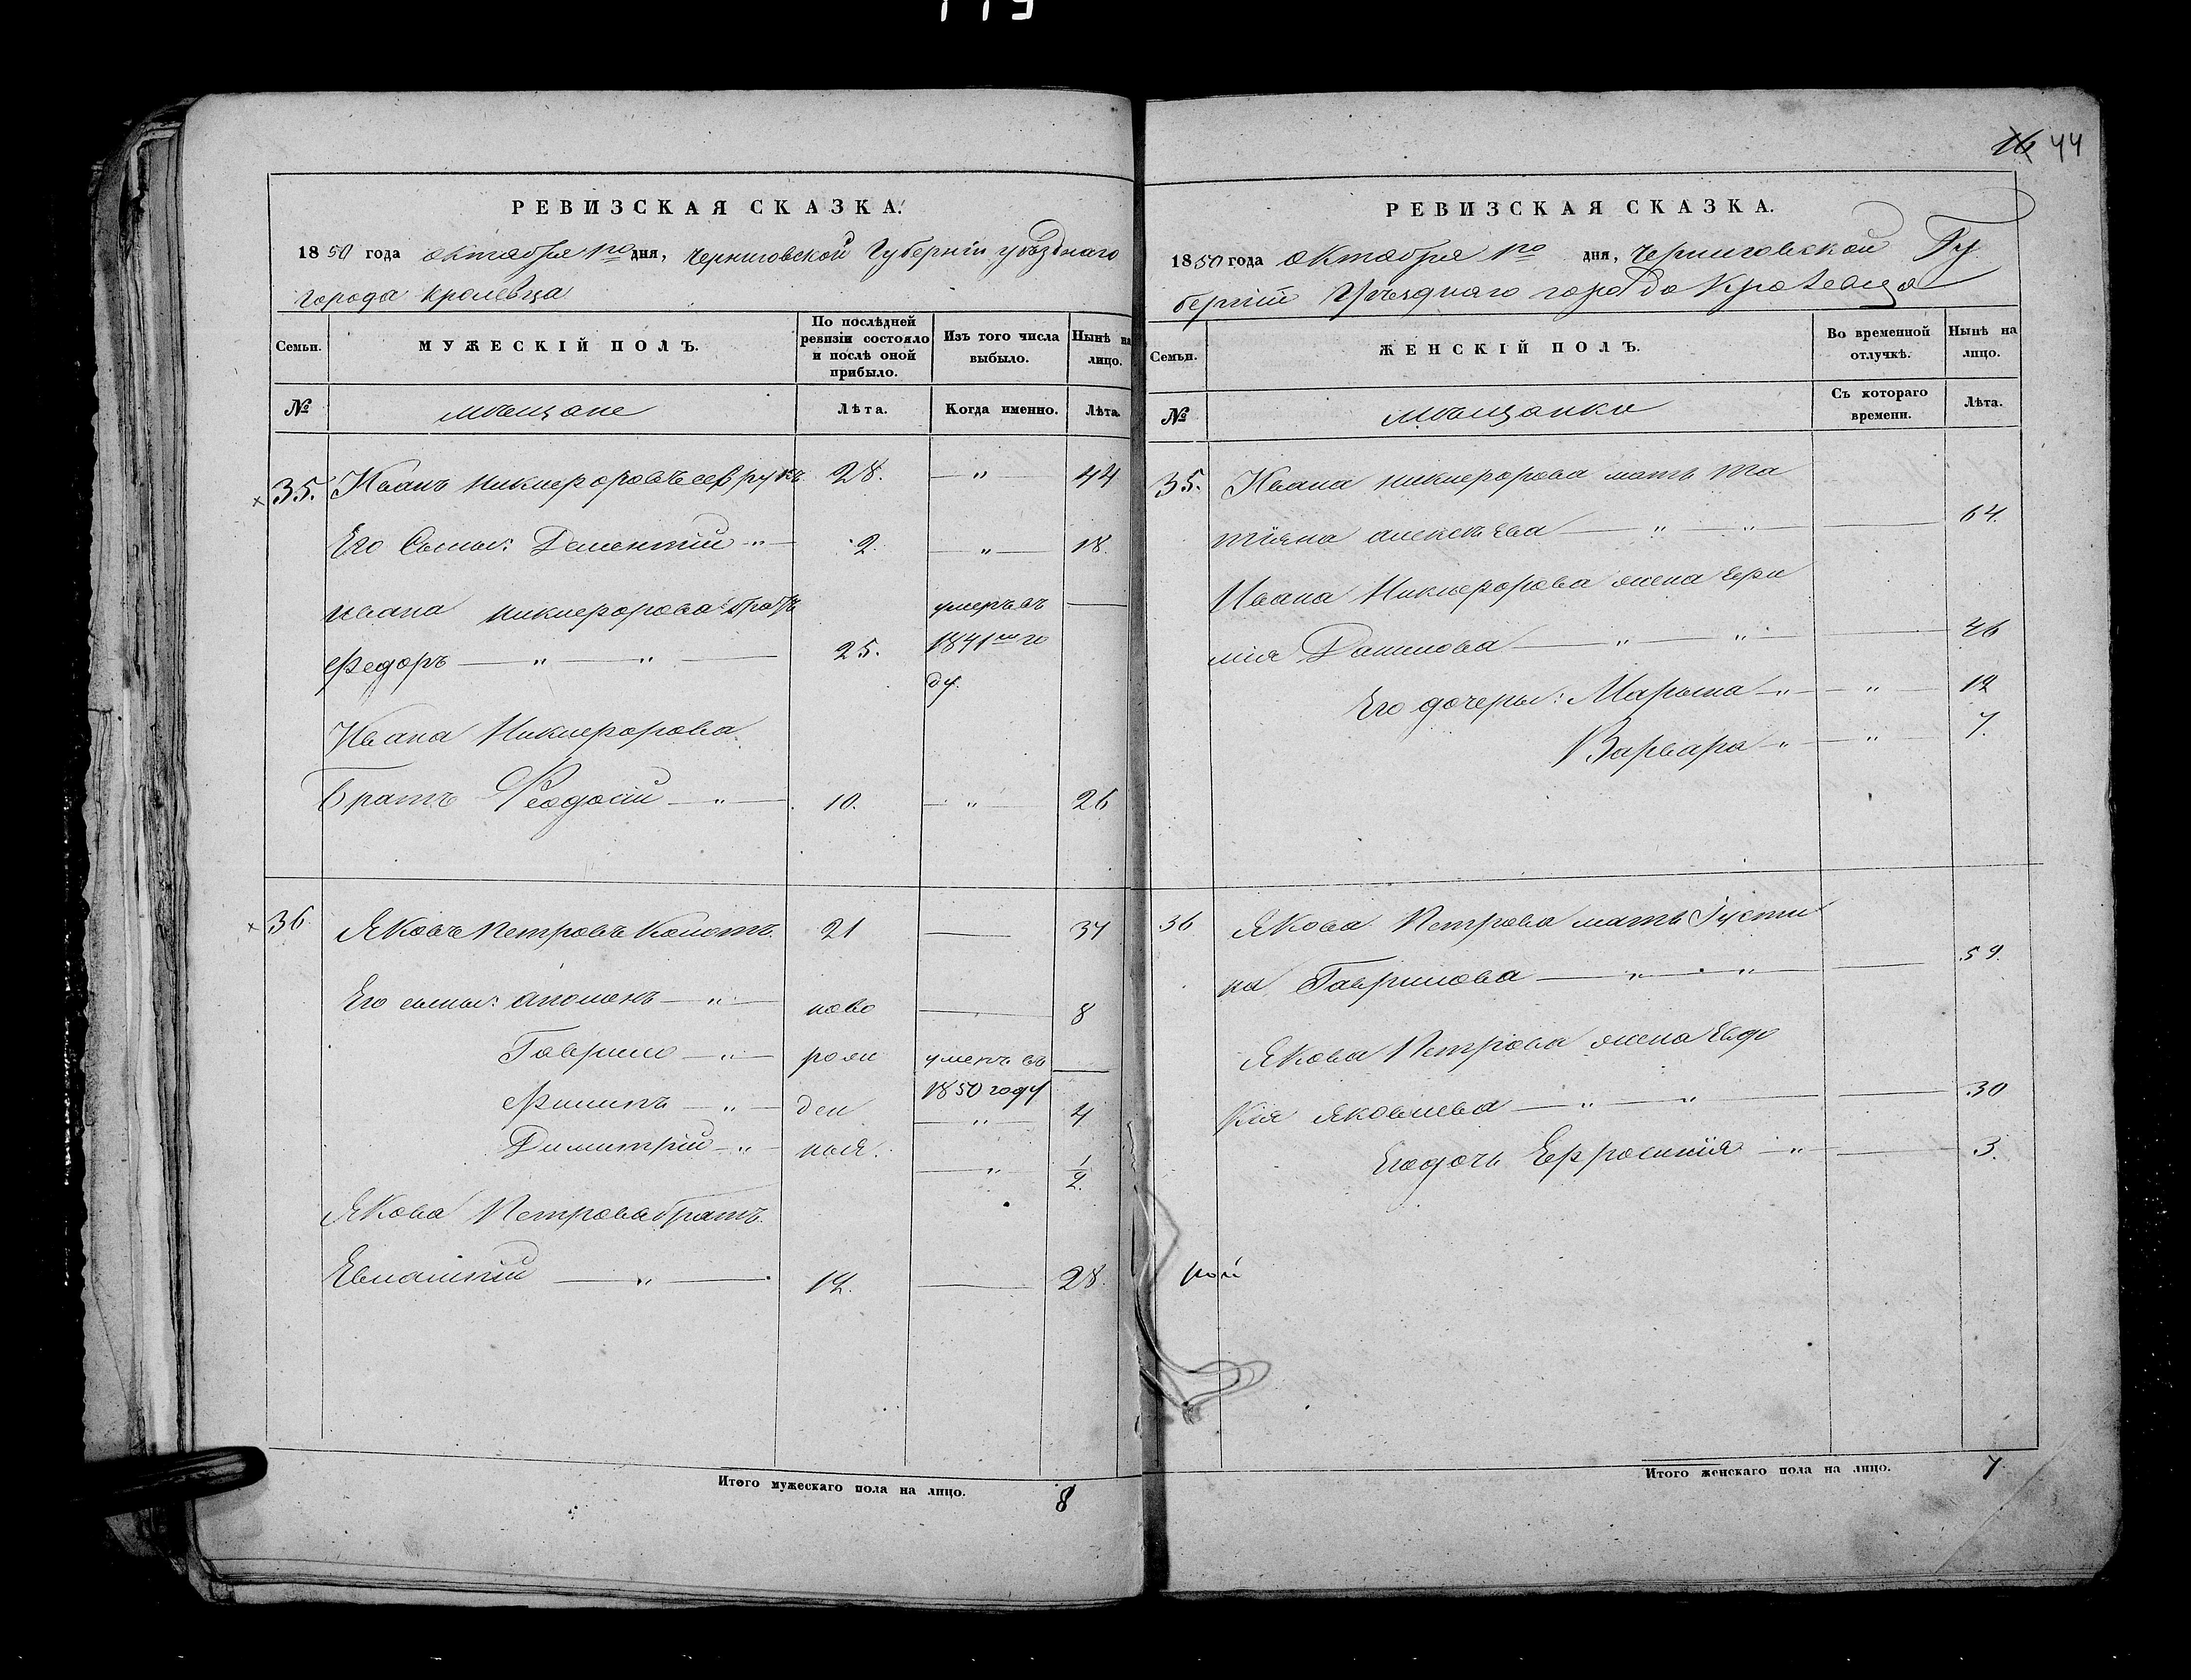 16 44
РЕВИЗСКАЯ СКАЗКА.
1850 года октября 1го дня, Черниговской Губернiи уѣзднаго
города Кролевца
Семьи.
МУЖЕСКIЙ ПОЛЪ.
По послѣдней ревизiи состояло и послѣ оной прибыло.
Изъ того числа выбыло.
Нынѣ на лицо.
№
мѣщане
Лѣта.
Когда именно.
Лѣта.
35. Иванъ Никифоровъ Севрукъ 28. — " — 44
Его Сыны: Дементiй — " — 2. — " — 18.
Ивана Никифорова братъ умеръ въ —
Федоръ — " — " — 25. 1841мъ го
ду.
Ивана Никифорова
Братъ Феодосiй — " — 10. — " 26
36 Яковъ Петровъ 21 — 37
Его сыны: — " — ново — 8
Гаврило — " — рож умеръ въ —
1850 году
Филипъ — " — ден — " — 4
Димитрiй — " — ныя. — " — 1/2
Якова Петрова братъ
— " — 12. — 28.
Итого мужескаго пола на лицо. 8
РЕВИЗСКАЯ СКАЗКА.
1850 года октября 1го дня, Черниговской Гу
бернiй Уѣзднаго города Кролевца
Семьи.
ЖЕНСКIЙ ПОЛЪ.
Во временной отлучкѣ.
Нынѣ на лицо.
№
мѣщанки
Съ котораго времени.
Лѣта.
35. Ивана Никифорова мать Та
тiяна Алексѣева — " — " — 64.
Ивана Никифорова жена Ефи
мiя Данилова — " — " — 46
Его дочеры: Марына — " — " — 12
Варвара — " — " — 7.
36 Якова Петрова мать Iусти
на Гаврилова — " — " — 59.
Якова Петрова жена Евдо
кiя Яковлева — " — " — 30
Его дочь Ефросинiя — " — 3.
Итого женскаго пола на лицо. 7